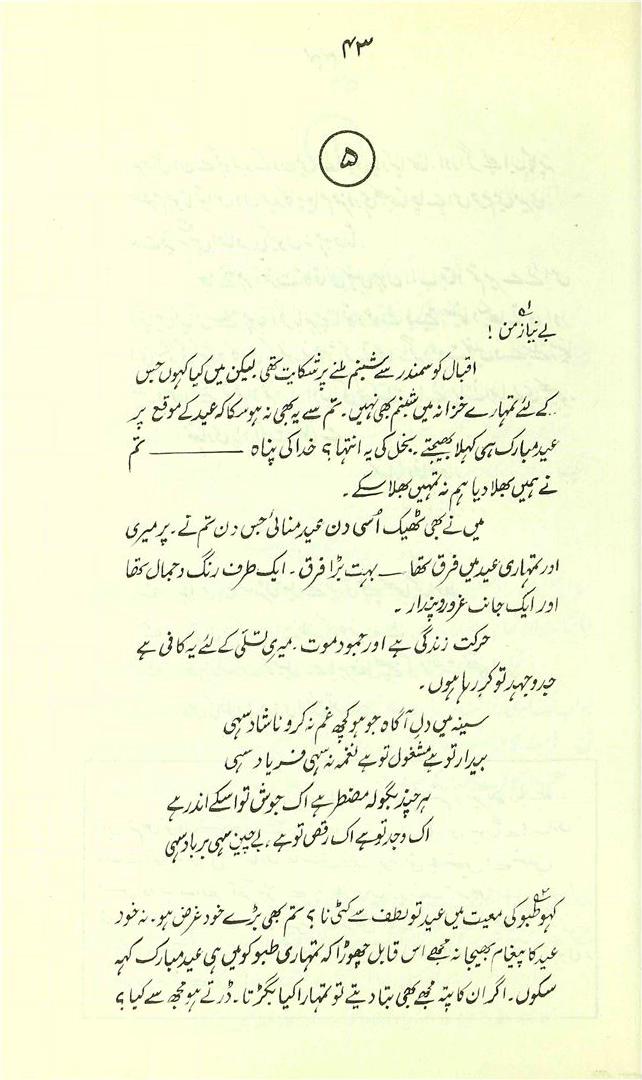 ۴۳
۵
بے نیاز من !
اقبال کو سمندر سے شبنم ملنے پر شکایت تھی۔ لیکن میں کیا کہوں جس
کے لئے تمہارے خزانہ میں شبنم بھی نہیں۔ تم سے یہ بھی نہ ہو سکا کہ عید کے موقع پر
عید مبارک ہی کہلا بھیجتے۔ بخل کی یہ انتہا ؟ خدا کی پناہ ——— تم
نے ہمیں بھلا دیا ہم نہ تمہیں بھلا سکے۔
میں نے بھی ٹھیک اُسی دن عید منائی جس دن تم نے۔ پر میری
اور تمہاری عید میں فرق تھا — بہت بڑا فرق۔ ایک طرف رنگ و جمال تھا
اور ایک جانب غرور و پندار۔
حرکت زندگی ہے اور جمود موت۔ میری تسلّی کے لئے یہ کافی ہے
جدوجہد تو کر رہا ہوں۔
سینہ میں دل آگاہ جو ہو کچھ غم نہ کرو ناشاد سہی
بیدار تو ہے مشغول تو ہے نغمہ نہ سہی فریاد سہی
ہر چند بگولہ مضطر ہے اک جوش تو اسکے اندر ہے
اک وجد تو ہے اک رقص تو ہے، بے چین سہی برباد سہی
کہو طبو کی معیت میں عید تو لطف سے کٹی نا ؟ تم بھی بڑے خود غرض ہو۔ نہ خود
عید کا پیغام بھیجا نہ مجھے اس قابل چھوڑا کہ تمہاری طبو کو میں ہی عید مبارک کہہ
سکوں۔ اگر ان کا پتہ مجھے بھی بتا دیتے تو تمہارا کیا بگڑتا۔ ڈرتے ہو مجھ سے کیا ؟